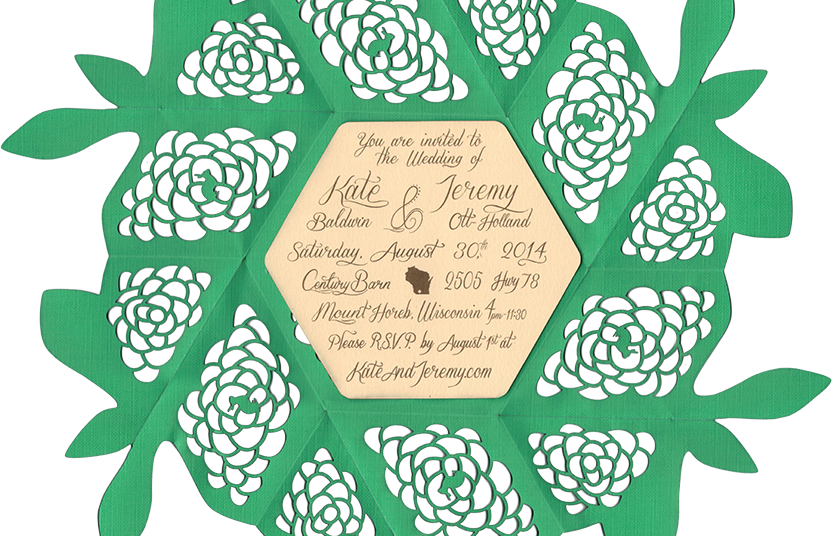 You are invited to
the Wedding of
Kate & Jeremy
Baldwin Ott-Holland
Saturday, August 30th 2014
Century Barn 2505 Hwy 78
Mount Horeb, Wisconsin 4pm-11:30
Please R.S.V.P. by August 1st at
KateAndJeremy.com